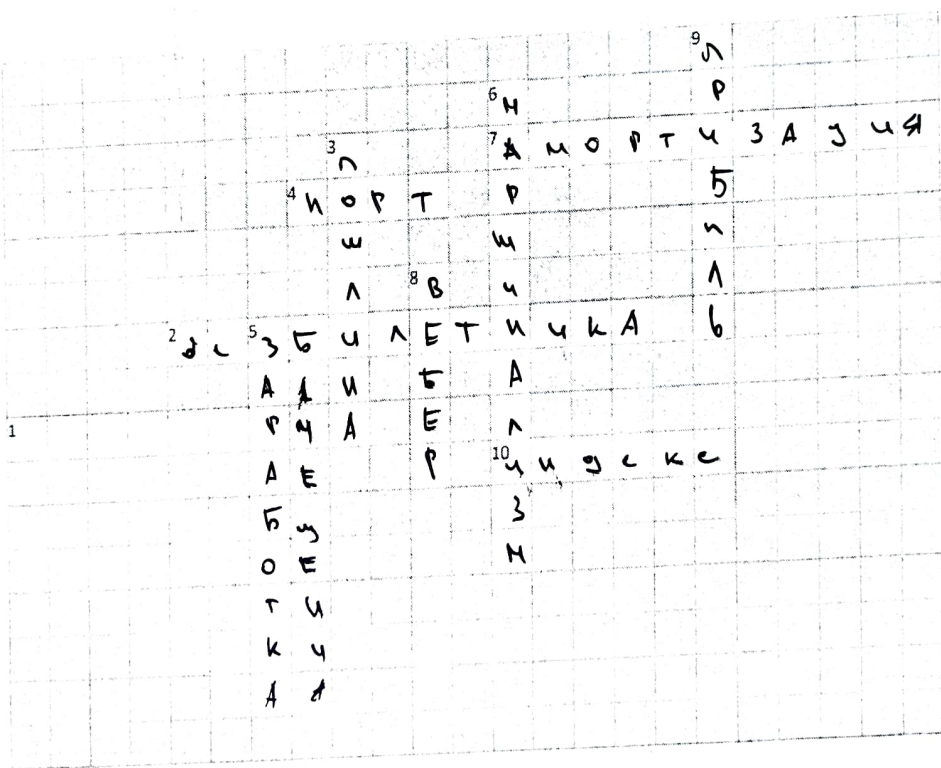 9 ПРИБЫЛЬ
6 МАРШИНАЛИЗМ
7 АМОРТИЗАЦИЯ
3 ПОШЛИНА
4 НОРТ
8 ВЕБЕР
2 безБИЛЕТНИКА
5 ЗАРАБОТКА
1
10 индекс